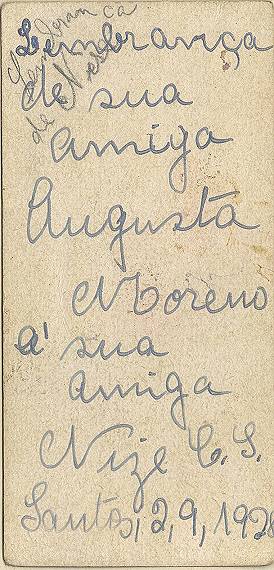 Lembrança
de sua
amiga
Augusta
Moreno
a' sua
amiga
Nize C. S.
Santos, 2, 9, 1928
Lembrança
de